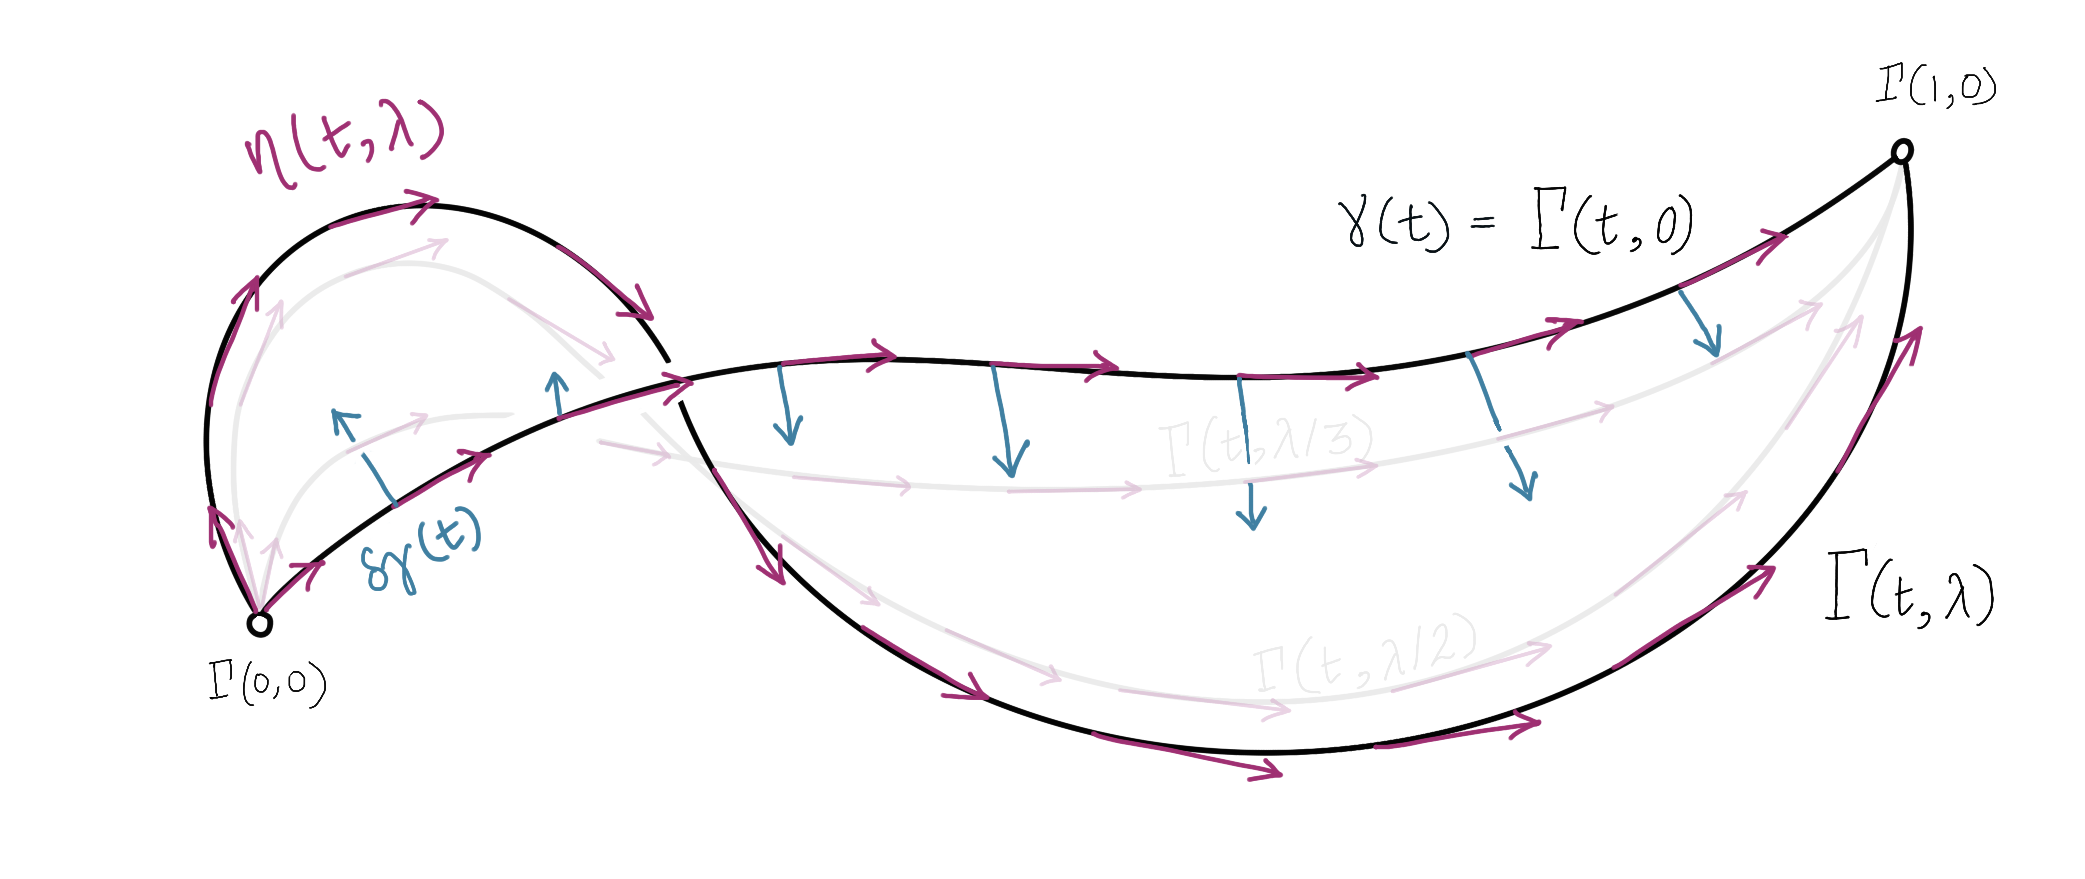 Γ(1,0)
η(t,λ)
γ(t) = Γ(t,0)
Γ(t,λ/3)
δγ(t)
Γ(t,λ)
Γ(t,λ/2)
Γ(0,0)